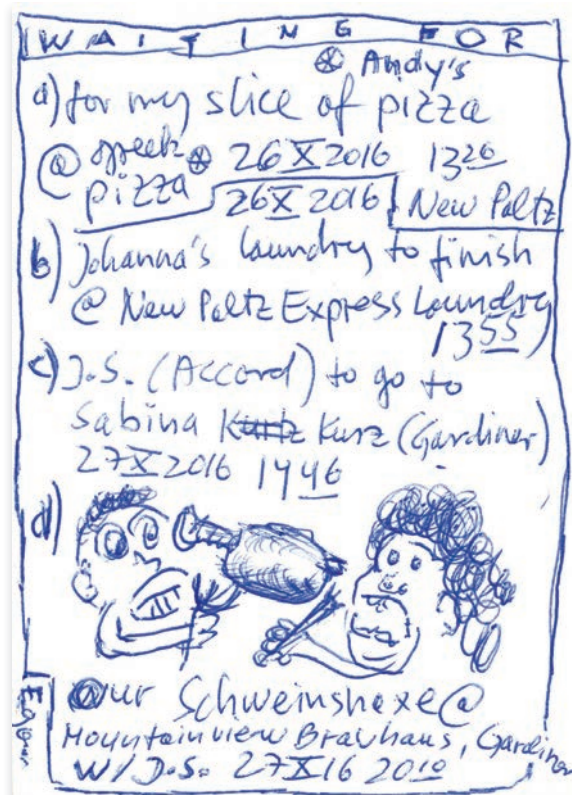 WAITING FOR
⊛ Andy's
a) for my slice of pizza
@ pizza ⊛ 26 X 2016 13 20
26 X 2016 New Paltz
b) Johanna's laundry to finish
@ New Paltz Express Laundry
13 55
c) J.S. (Accord) to go to
Sabina Kurtz Kurz (Gardiner)
27 X 2016 14 46
d)
our Schweinshaxe @
Mountainview Brauhaus, Gardiner
W/ J.S. 27 X 16 20 10